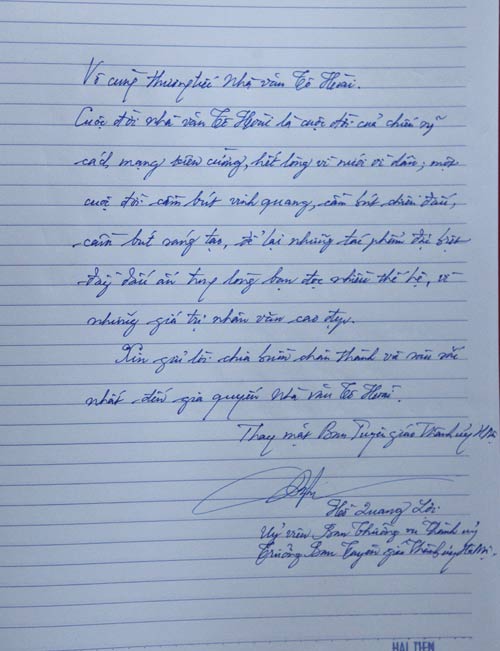 Vô cùng thương tiếc Nhà văn Tô Hoài.
Cuộc đời nhà văn Tô Hoài là cuộc đời của chiến sỹ
cách mạng kiên cường, hết lòng vì nước vì dân; một
cuộc đời cầm bút vinh quang, cầm bút chiến đấu,
cầm bút sáng tạo, để lại những tác phẩm đặc biệt
đầy dấu ấn trong lòng bạn đọc nhiều thế hệ, vì
những giá trị nhân văn cao đẹp.
Xin gửi lời chia buồn chân thành và sâu sắc
nhất đến gia quyến Nhà văn Tô Hoài.
Thay mặt Ban Tuyên giáo Thành ủy HNội
Hồ Quang Lợi
Uỷ viên Ban Thường vụ Thành uỷ
Trưởng Ban Tuyên giáo Thành ủy Hà Nội.
HẢI TIẾN